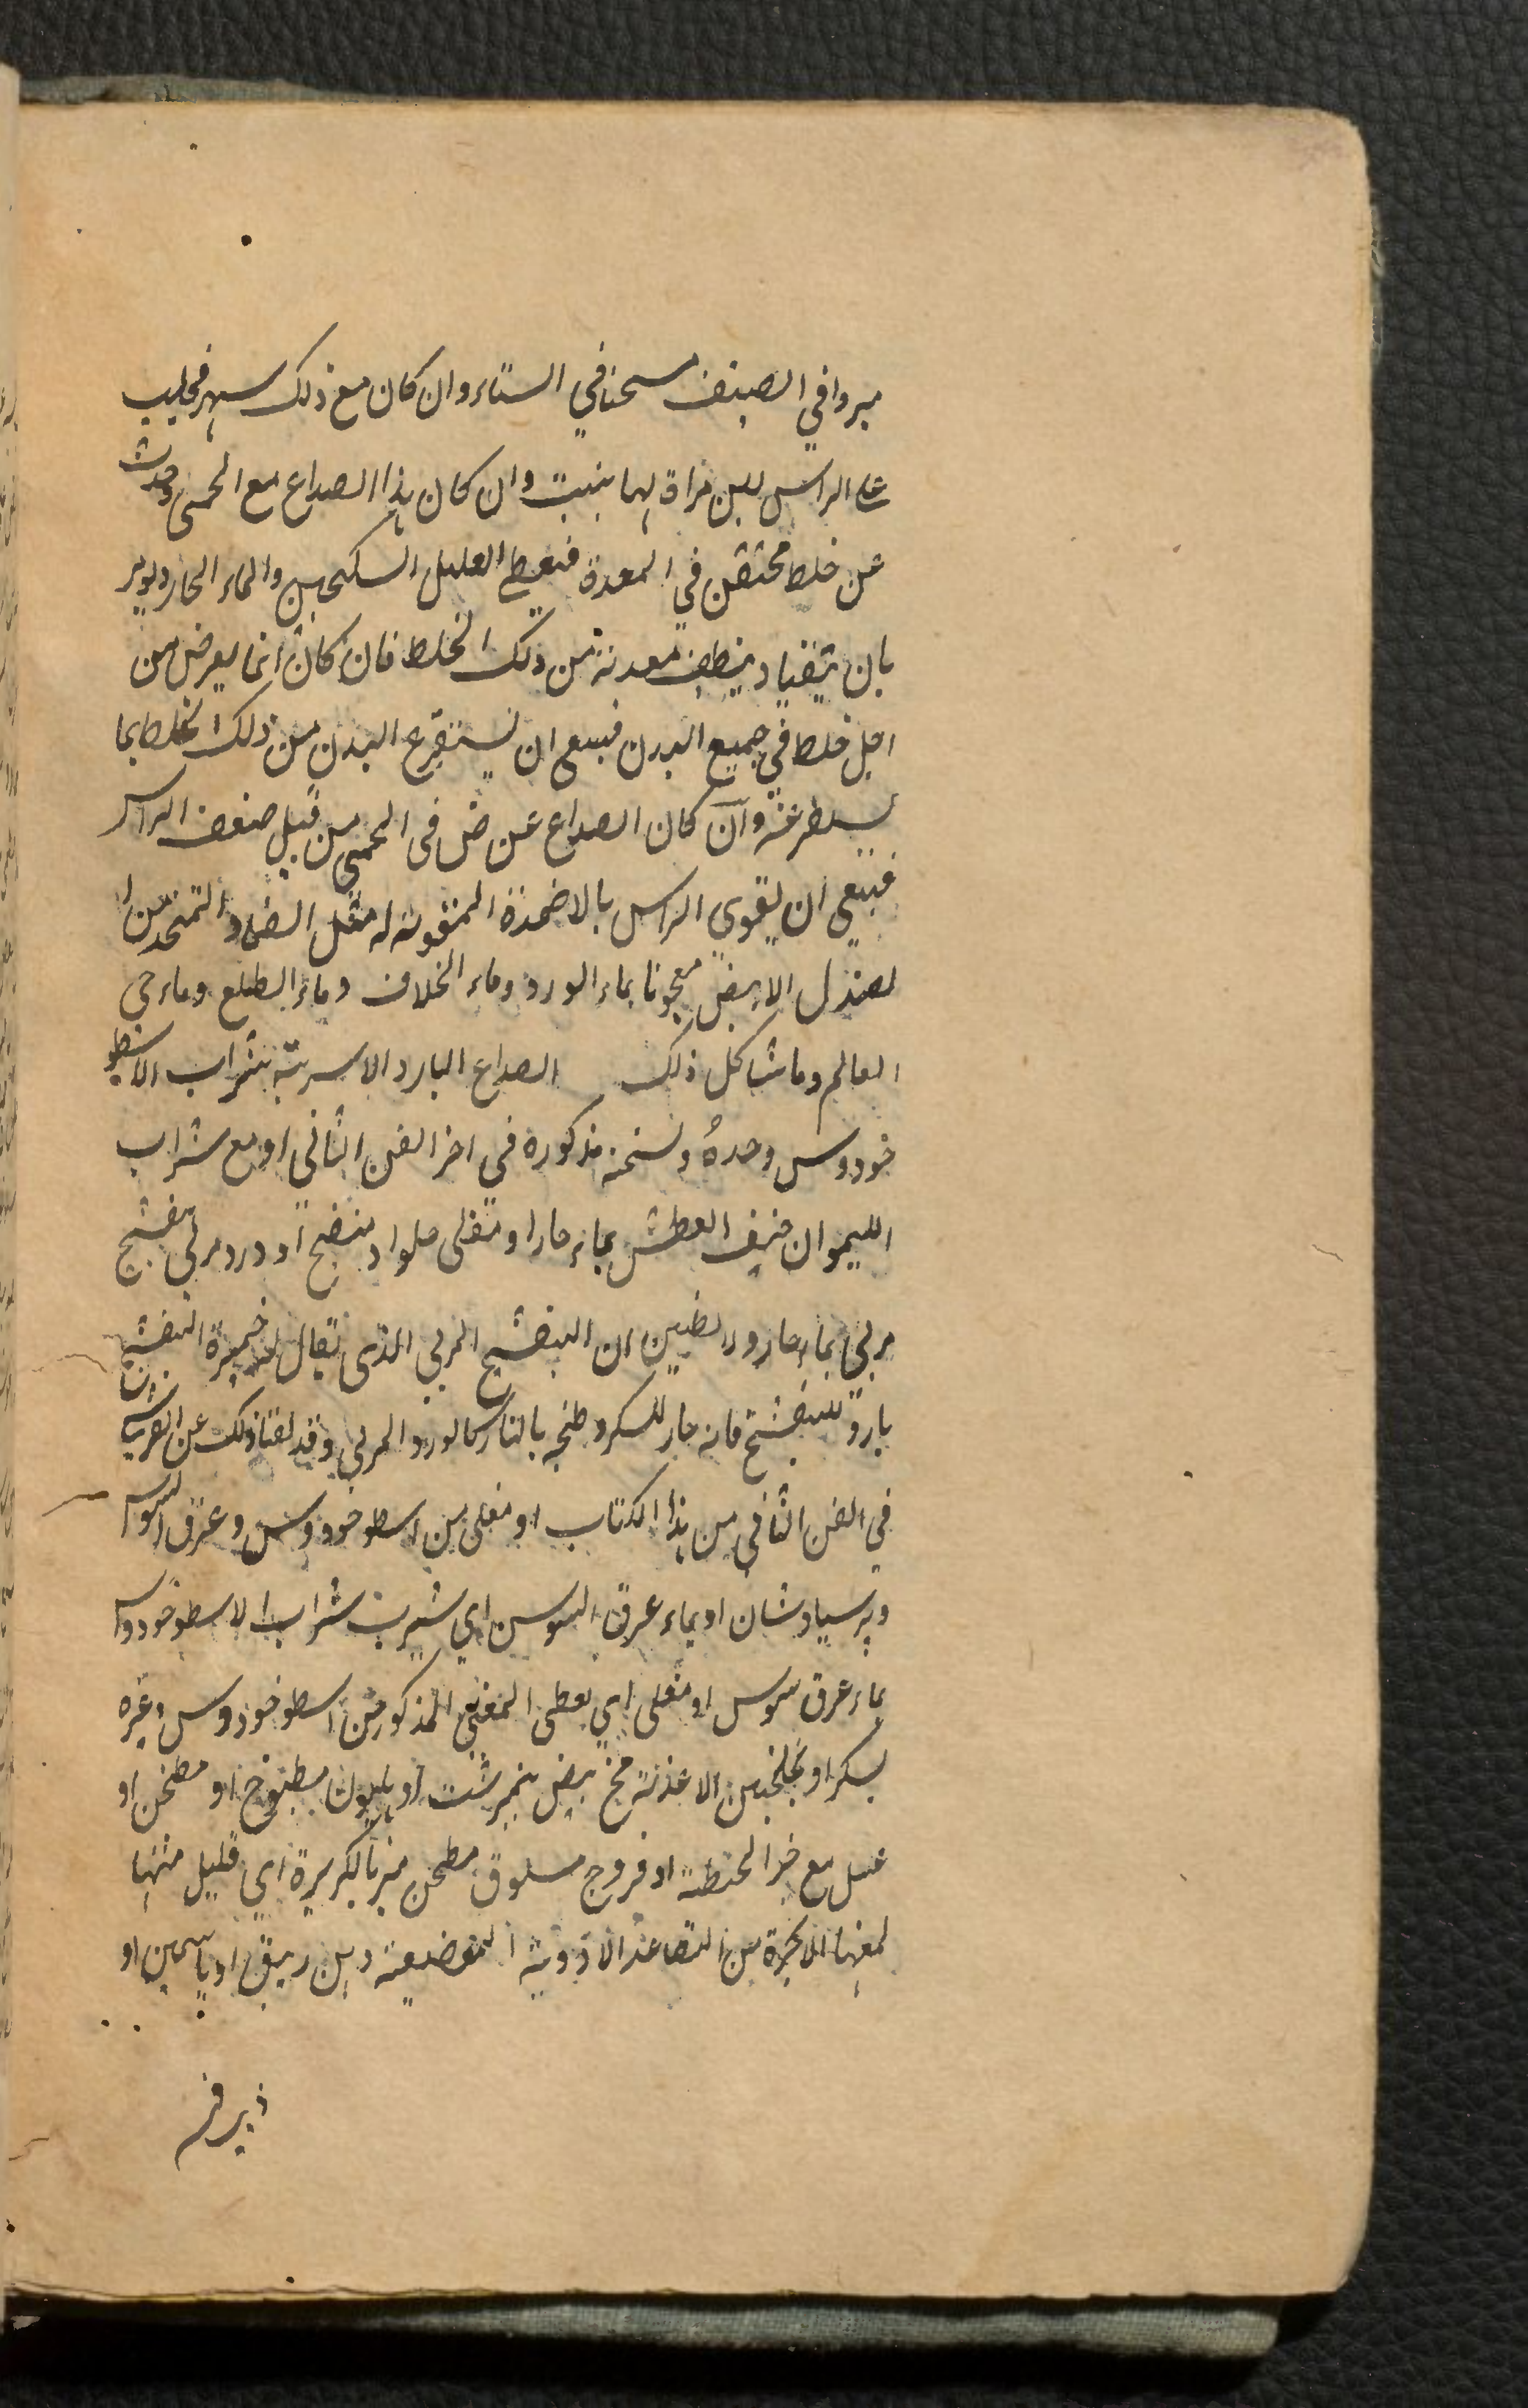 مبردا في الصيف مسخنا في الشتاء وان كان مع ذلك سهر فحليب
على الراس لبن مراة لها بنت وان كان هذا الصداع مع الحمى وحدث
عن خلط محتقن في المعدة فيعطى العليل السكنجبين والماء الحار ويومر
بان يتقيا وينظف معدته من ذلك الخلط فان كان انما يعرض من
اجل خلط في جميع البدن فينبغي ان يستفرغ البدن من ذلك الخلط بما
وان كان الصداع عرض في الحمى من قبل ضعف الراس
فينبغي ان يقوى الراس بالاضمدة المقوية له مثل الضماد المتخذ من ا
لصندل الابيض معجونا بماء الورد وماء الخلاف وماء الطلع وماء حي
العالم وما شاكل ذلك الصداع البارد الاشربة شراب الاسطو
خودوس وحده ونسخته مذكورة في اخر الفن الثاني او مع شراب
الليمو ان خيف العطش بماء حار او مغلى حلو او منضج او ورد مربى بنفسج
مربى بماء حار ولا تظنن ان البنفسج المربى الذي يقال له خميرة البنفسج
بارد كالبنفسج فانه حار للسكر وطبخه بالنار كالورد المربى وقد لقنا ذلك عن القرشي
في الفن الثاني من هذا الكتاب او مغلى من اسطوخودوس وعرق السوس
وبرسياوشان او بماء عرق السوس اي شيرب شراب الاسطوخودوس
بماء عرق سوس او مغلى اي يعطى المغلى المذكور من اسطوخودوس وغيره
بسكر او بجلنجبين الاغذية مخ بيض نيمرشت او هليون مطبوخ او مطجن او
عسل مع خبز الحنطة او فروج مسلوق مطجن مبزر بالكزبرة اي قليل منها
لمنعها الابخرة من التصاعد الادوية الموضعية دهن زنبق او ياسمين او